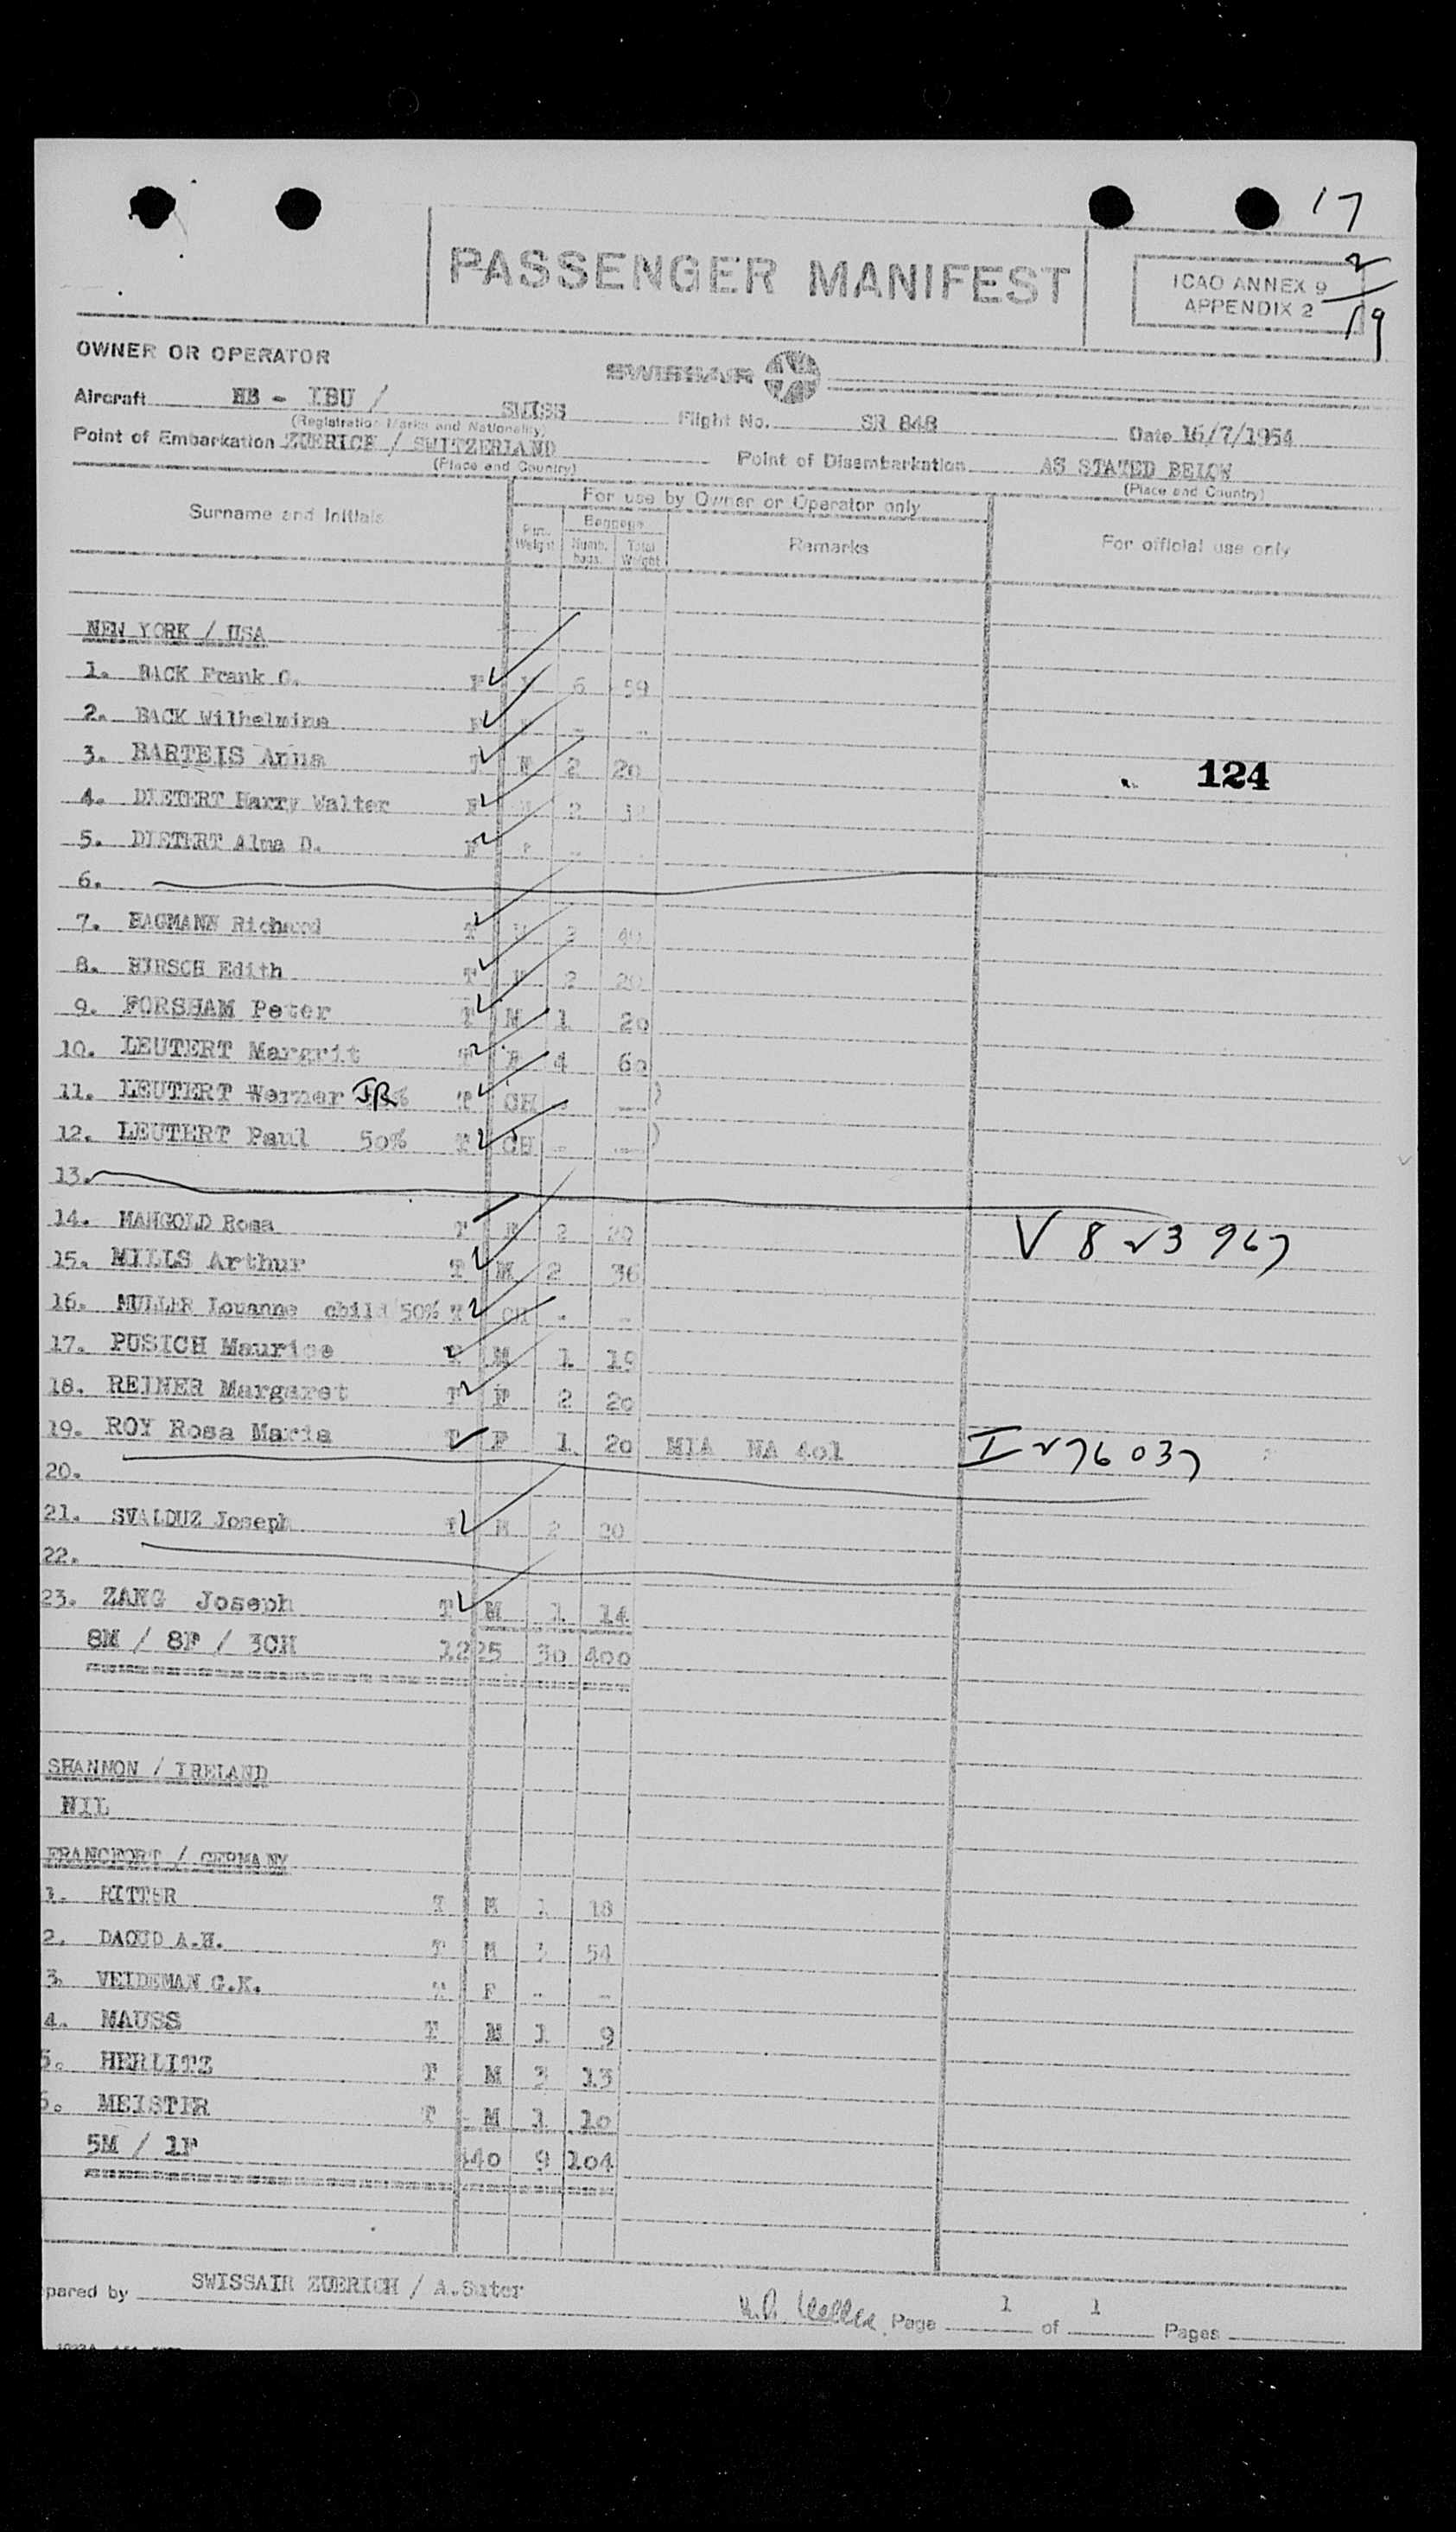 17
PASSENGER MANIFEST
ICAO ANNEX 9
APPENDIX 2
2
19
OWNER OR OPERATOR
SWISSAIR
Aircraft HB - IBU / SUISS Flight No. SR 848 Date 16/7/1954
(Registration Marks and Nationality)
Point of Embarkation ZUERICH / SWITZERLAND Point of Disembarkation AS STATED BELOW
(Place and Country) (Place and Country)
Surname and Initials For use by Owner or Operator only For official use only
Weight Baggage Numb. bags. Total Weight Remarks
NEW YORK / USA
1. BACK Frank G. F M 6 59
2. BACK Wilhelmina F - -
3. BARTEIS Anna T 2 20
124
4. DIETERT Harry Walter F M 2
5. DIETERT Alma D. F F - -
6.
7. HAGMANN Richard T M 2 40
8. HIRSCH Edith T F 2 20
9. FORSHAM Peter T M 1 20
10. LEUTERT Margrit T F 4 60
11. LEUTERT Werner JR T CH - — )
12. LEUTERT Paul 50% T CH - — )
13.
14. MANGOLD Rosa T F 2 20 V 823967
15. MILLS Arthur T M 2 36
16. MULLER Louanne child 50% T CH - -
17. PUSICH Maurice M 1 19
18. REINER Margaret T F 2 20
19. ROY Rosa Maria T F 1 20 MIA NA 401 I 276037
20.
21. SVALDUZ Joseph T M 2 20
22.
23. ZANG Joseph T M 1 14
8M / 8F / 3CH 1225 30 400
SHANNON / IRELAND
NIL
FRANCFORT / GERMANY
1. RITTER T M 1 18
2. DAOUD A.H. T M 3 54
3. VEIDEMAN G.K. T F - -
4. MAUSS T M 1 9
5. HERLITZ T M 3 13
6. MEISTIR T M 1 10
5M / 1F 440 9 104
pared by SWISSAIR ZUERICH / A.Suter Page 1 of 1 Pages